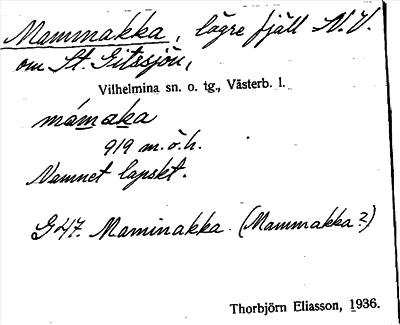 Mammakka, lägre fjäll N.V.
om St. Gitsjön,
Vilhelmina sn. o. tg., Västerb. l.
mámaka
919 m.ö.h.
Namnet lapskt.
G 47. Maminakka (Mammakka?)
Thorbjörn Eliasson, 1936.